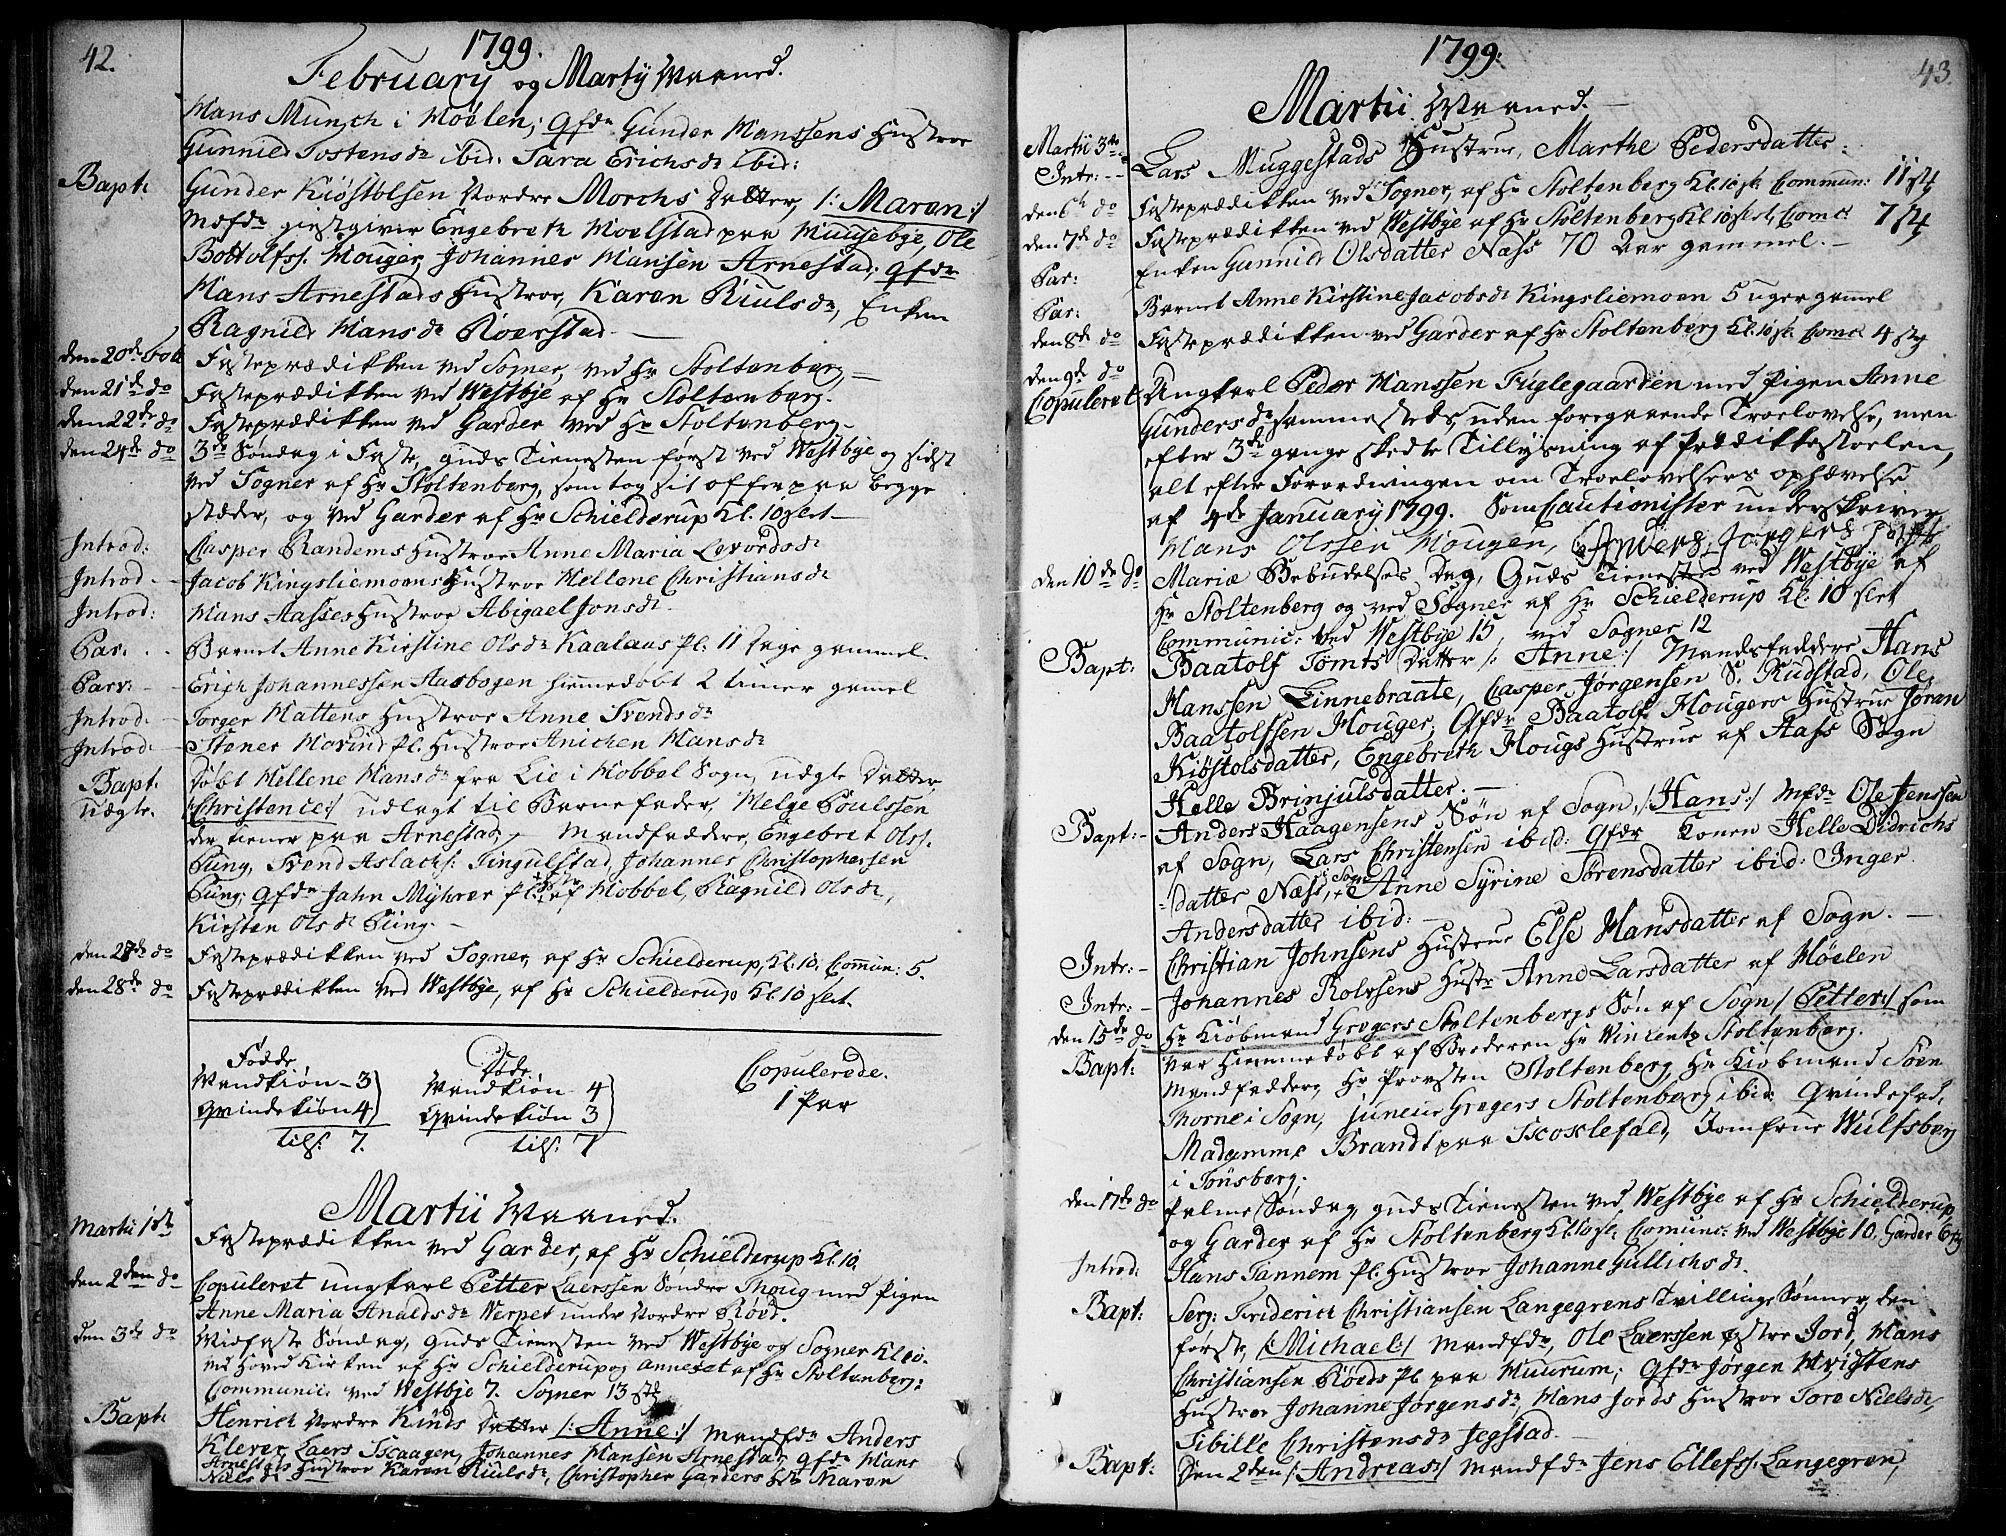 42.
1799.
February og Martÿ Maaned.
Hans Munch i Moelen; Qfdr Gunder Hanssens Hustroe
Gunnild Tostensdr ibid. Sara Erichsdr ibid:
Bapt: Gunder Kiøstolsen Nordre Morchs Datter, /: Maren :/
Mdfdr giestgiver Engebreth Moelstad paa Muusebye, Ole
Bottolfss. Houger, Johannes Hansen Arnestad; Qfdr
Hans Arnestads Hustroe, Karen Riulsdr, Enken
Ragnild Hansdr Roerstad
den 20de Fasteprædikken ved Sogner, ved Hr Stoltenberg,
den 21de do Fasteprædikken ved Westbye af Hr Stoltenberg.
den 22de do Fasteprædikken ved Garder ved Hr Stoltenberg
den 24de do 3de Søndag i Faste, Guds Tienesten først ved Westbye og sidst
ved Sogner af Hr Stoltenberg, som tog sit offer paa begge
stæder, og ved Garder af Hr Schielderup Kl. 10 slet
Introd: Casper Randems Hustroe Anne Maria Levordsdr
Introd. Jacob Kingsliemoens Hustroe Hellene Christiansdr
Introd: Hans Aasses Hustroe Abigael Jonsdr.
Par: Barnet Anne Kirstine Olsdr Kaalaas Pl: 11 Dage gammel.
Parv: Erich Johannessen Aasbogen hiemmedøbt 2 timer gamel
Introd. Torger Hattens Hustroe Anne Svendsdr
Introd. Stener Horind Pl. Hustroe Anichen Hansdr
Bapt. Døbt Hellene Hansdr fra Lie i Hobbel Sogn, uægte Datter,
Uægte. /: Christence :/ udlagt til Barnefader, Helge Poulssen
der tiener paa Arnestad, Mandfaddere, Engebret Olss.
Pung, Svend Aslachs: Tingulstad, Johannes Christophersen
Pung, Qfdr Jahn Myhrer pl: af Hobbel, Ragnild Olsdr,
Kirsten Olsdr Pung.
den 27de do Fasteprædikken ved Sogner, af Hr Schielderup, Kl: 10. Commun: 5.
den 28de do Fasteprædikken ved Westbye, af Hr Schielderup Kl. 10 slet.
Fødde. Døde. Copulerede.
Mandkiøn - 3 Mandkiøn 4 1 Par
Qvindekiøn 4 Qvindekiøn 3
tils: 7. tils: 7
Martii Maaned.
Martii 1ste Fasteprædikken ved Garder, af Hr Schielderup Kl. 10.
den 2den do Copuleret ungkarl Petter Laerssen Søndre Thoug med Pigen
Anne Maria Analdsdr Werpet under Nordre Røed.
den 3de do Midfaste Søndag, Guds Tienesten ved Westbye og Sogner Kl 10.
ved Hoved Kirken af Hr Schielderup og annexet af Hr Stoltenberg:
Communic: ved Westbye 7. Sogner 13 st:
Bapt: Henrich Nordre Kinds Datter /: Anne :/ Mandfdr Anders
Klever, Laers Skaagen, Johannes Hansen Arnestad, Qfdr Hans
Arnestads Hustroe Karen Riulsdr, Christopher Garders Hstr Maren
Nielsdr
43.
1799.
Martii Maaned.
Martii 3de
Intr: Lars Muggestads Hustrue, Marthe Pedersdatter
den 6te do Fasteprædikken ved Sogner, af Hr Stoltenberg Kl: 10 sl: Commun: 11 st
den 7de do Fasteprædikken ved Westbye af Hr Stoltenberg Kl 10 slet, Comc: 7 st
Par: Enken Gunnild Olsdatter Næss 70 Aar gammel.
Par: Barnet Anne Kirstine Jacobsdr Kingsliemoen 5 uger gamel
den 8de do Fasteprædikken ved Garder af Hr Stoltenberg Kl. 10 sl. Comc: 4 sty
den 9de do Ungkarl Peder Hanssen Fuglegaarden med Pigen Anne
Copuleret: Gundersdr sammesteds, uden foregaaende Troelovelse, men
efter 3de gange skedte Tillysning af Prædikkestoelen,
alt efter Forordningen om Troelovelsers ophævelse
af 4de January 1799. Som Cautionister underskriver
Hans Olssen Hougen,
den 10de do Mariæ Bebudelses Dag, Guds Tienesten ved Westbye af
Hr Stoltenberg og ved Sogner af Hr Schielderup Kl: 10 slet
Communic: ved Westbye 15, ved Sogner 12
Bapt: Baatolf Tømts Datter /: Anne :/ Mandsfaddere Hans
Hanssen Linnebraate, Casper Jørgensen S. Rudstad, Ole
Baatolssen Houger, Qfdr Baatolf Hougers Hustrue Jøran
Kiøstolsdatter, Engebrith Hougs Hustrue af Aass Sogn
Helle Brinjulsdatter.
Bapt: Anders Haagensens Søn af Sogn, /: Hans :/ Mfdr Ole Jenssen
af Sogn, Lars Christensen ibid: Qfdr Konen Helle Didrichs
datter Næss, i Sogn Anne Syrine Sørensdatter ibid: Inger
Andersdatter ibid:
Intr: Christian Johnsens Hustrue Else Hansdatter af Sogn.
Intr: Johannes Rolvsens Hustr Anne Larsdatter af Møelen
den 15de do Hr Kiøbmand Gregers Stoltenbergs Søn af Sogn /: Petter :/ som
Bapt: var hiemmedøbt af Broderen Hr Vincentz Stoltenberg.
Mandfaddere, Hr Provsten Stoltenberg, Hr Kiøbmand Søen
Thorne i Sogn, juneur Gregers Stoltenberg ibid: Qvindefad.
Madamme Brandt paa Skoklefald, Jomfrue Wulfsberg
i Tønsberg.
den 17de do Palme Søndag, Guds Tienesten ved Westbye af Hr Schielderup
og Garder af Hr Stoltenberg Kl: 10 sl: Comunc: ved Westbye 10. Garder 6 st
Introd: Hans Tannem pl. Hustroe Johanne Gullichsdr.
Bapt: Serg: Friderich Christiansen Langegrens Tvillinge Sønner, den
første, /: Michael :/ Mandfdr, Ole Laerssen østre Jord, Hans
Christiansen Røeds pl. paa Muurum; Qfdr Jørgen Hvidstens
Hustroe Johanne Jørgensdr, Hans Jords Hustroe Tore Nielsdr,
Sibille Christensdr Jegstad.
Bapt: Den 2den /: Andreas :/ Mandfdr Jens Ellefss. Langegren,